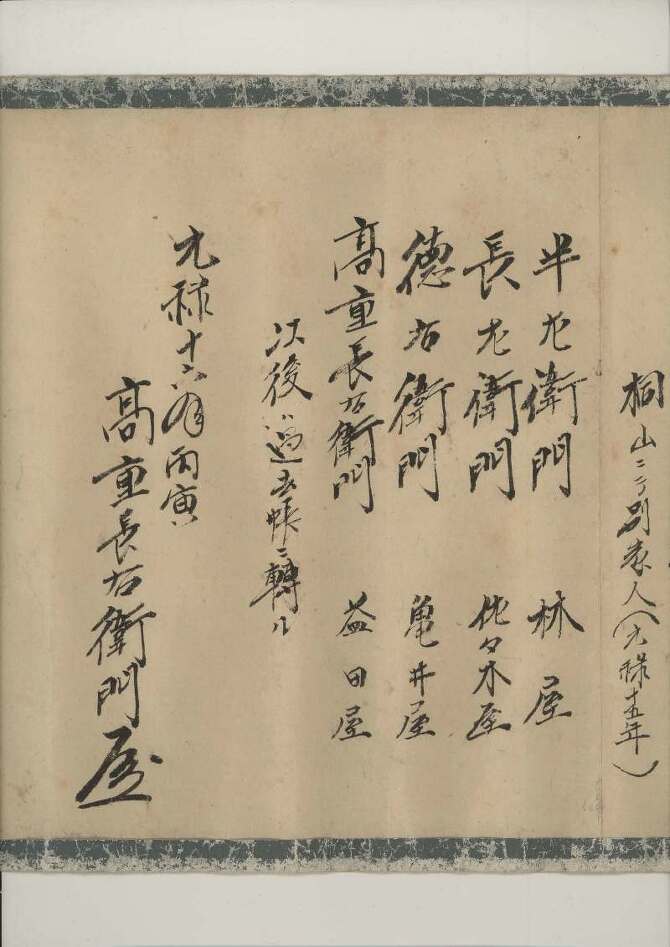 桐山ニテ別表人（元禄十五年）
半左衛門 林屋
長左衛門 佐々木屋
德右衛門 亀井屋
髙重長右衛門 益田屋
以後ハ過去帳ニ轉ル
元禄十六年丙寅
髙重長右衛門屋